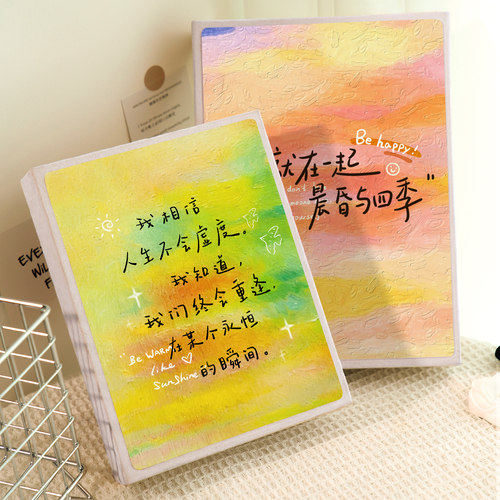 我相信
人生不会虚度。
我知道,
我们终会重逢,
在某个永恒
的瞬间。
Be warm
like
sunshine
Be happy!
就在一起
晨昏与四季"
don't